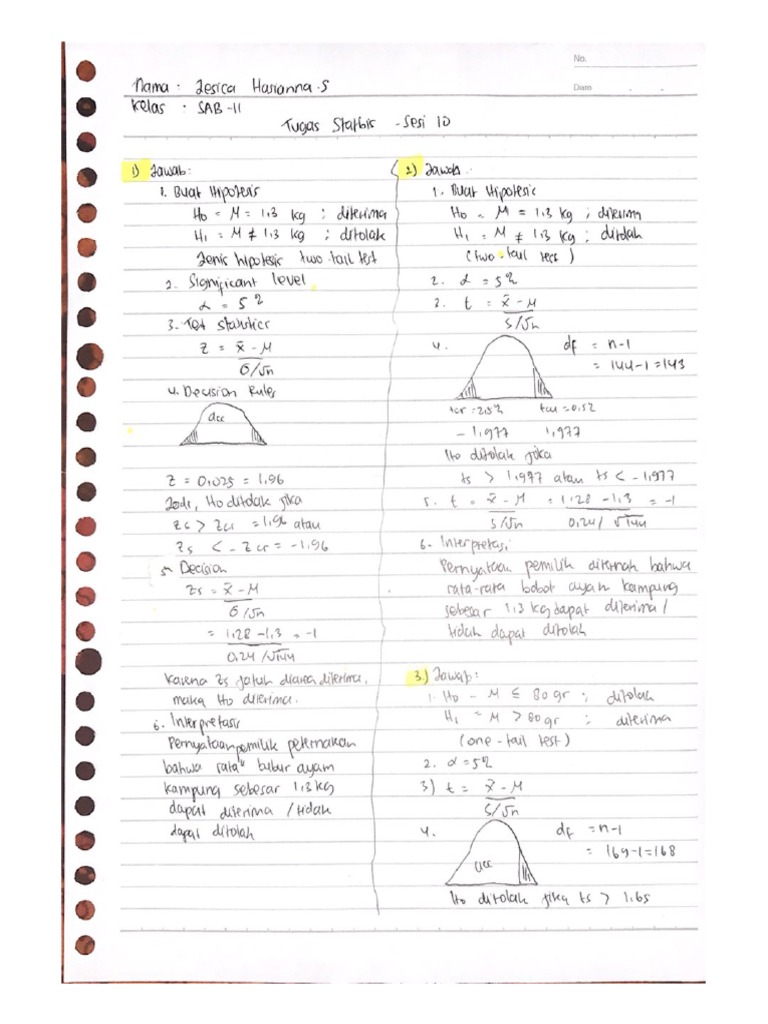 No.
Date
Nama : Jesica Harianna.S
Kelas : SAB-11
Tugas Statbis - Sesi 10
1) Jawab:
1. Buat Hipotesis
H0 = M = 1,3 kg ; diterima
H1 = M ≠ 1,3 kg ; ditolak
Jenis hipotesis two-tail test
2. Significant level
α = 5%
3. Test Statistics
Z = x̄ - M
σ/√n
4. Decision Rules
acc
Z = 0,025 = 1,96
Jadi, Ho ditolak jika
Zs > Zcr = 1,96 atau
Zs < -Zcr = -1,96
5. Decision
Zs = x̄ - M
σ/√n
= 1,28 - 1,3 = -1
0,24/√144
Karena Zs jatuh diarea diterima,
maka Ho diterima.
6. Interpretasi
Pernyataan pemilik peternakan
bahwa rata" bubur ayam
kampung sebesar 1,3 kg
dapat diterima / tidak
dapat ditolak
2) Jawab :
1. Buat Hipotesis
H0 = M = 1,3 kg ; diterima
H1 = M ≠ 1,3 kg ; ditolak
(two-tail test)
2. α = 5%
3. t = x̄ - M
S/√n
4. df = n-1
= 144-1 = 143
tcr = 2,5% tcu = 0,5%
-1,977 1,977
Ho ditolak jika
ts > 1,977 atau ts < -1,977
5. t = x̄ - M = 1,28 - 1,3 = -1
S/√n 0,24/√144
6. Interpretasi
Pernyataan pemilik diternah bahwa
rata-rata bobot ayam kampung
sebesar 1,3 kg dapat diterima /
tidah dapat ditolah
3.) Jawab:
1. H0 = M ≤ 80 gr ; ditolak
H1 = M > 80 gr ; diterima
(one-tail test)
2. α = 5%
3) t = x̄ - M
S/√n
4. df = n-1
= 169-1 = 168
acc
Ho ditolak jika ts > 1.65